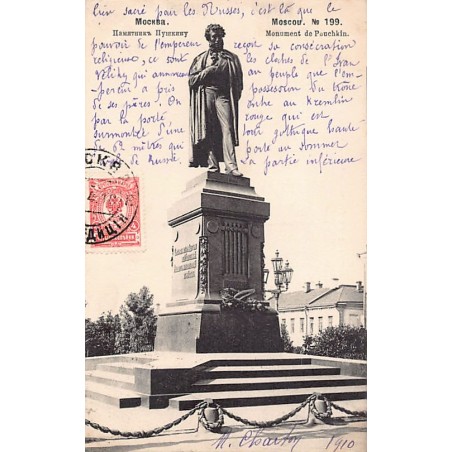 lien sacré par les Russes, c'est là que le
Москва. Moscou. № 199.
Памятникъ Пушкину Monument de Pouchkin.
pouvoir de l'empereur reçoit sa consécration
religieuse, ce sont les cloches de St Ivan
Véliky qui annoncent au peuple que l'em-
pereur a pris possession du trône
de ses pères. On entre au Kremlin
par la porte rouge qui est
surmontée d'une tour gothique haute
de mètres qui porte au sommet
de Russie. La partie inférieure
МОСКВА
1910